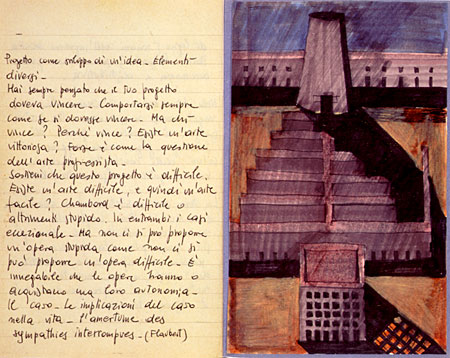 Progetto come sviluppo di un'idea - Elementi
diversi -
Hai sempre pensato che il tuo progetto
doveva vincere - Comportarsi sempre
come se si dovesse vincere - Ma chi
vince? Perché vince? Esiste un'arte
vittoriosa? Forse è come la questione
dell'arte progressista -
Sostieni che questo progetto è difficile.
Esiste un'arte difficile, e quindi un'arte
facile? Chambord è difficile o
altrimenti stupido. In entrambi i casi
eccezionale - Ma non ci si può proporre
un'opera stupida come non ci si
può proporre un'opera difficile - E'
innegabile che le opere hanno o
acquistano una loro autonomia -
Il caso - Le implicazioni del caso
nella vita - l'amertume des
sympathies interrompues - (Flaubert)